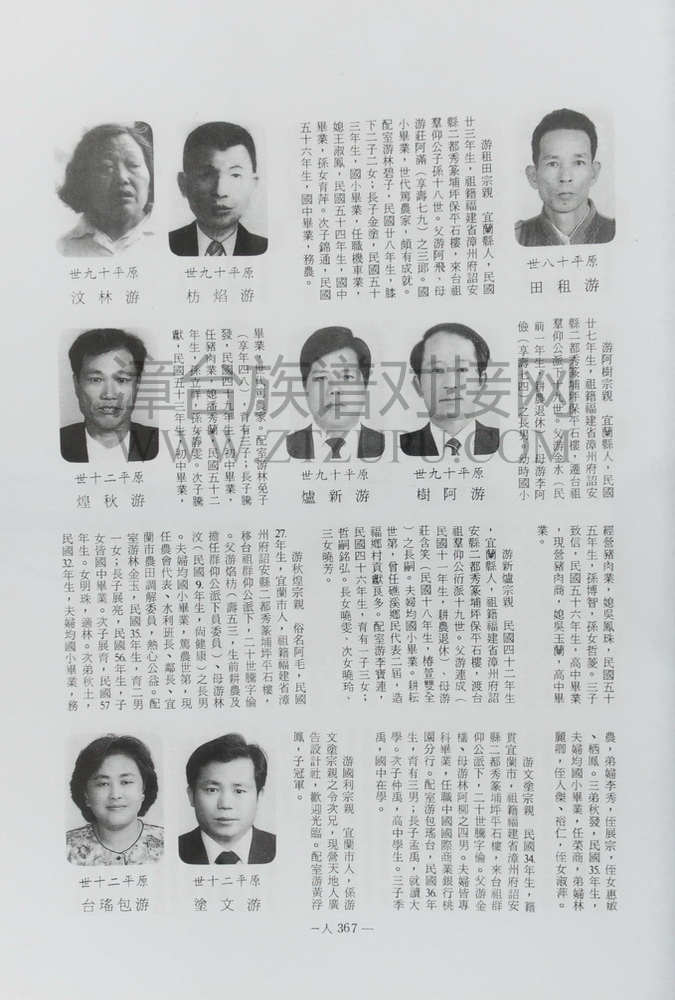 游租田宗親　宜蘭縣人，民國
廿三年生，祖籍福建省漳州府詔安
縣二都秀篆埔坪保平石樓，來台祖
羣仰公子孫十八世。父游阿飛、母
游莊阿滿（享壽七九）之三郎。國
小畢業，世代篤農家，頗有成就。
配室游林碧子，民國廿八年生，膝
下二子二女；長子金塗，民國五十
三年生，國小畢業，任職機車業，
媳王淑鳳，民國五十四年生，國中
畢業，孫女育萍。次子錦通，民國
五十六年生，國中畢業，務農。
原平十八世
游租田
原平十九世
游焰枋
原平十九世
游林汶
游阿樹宗親　宜蘭縣人，民國
廿七年生，祖籍福建省漳州府詔安
縣二都秀篆埔坪保平石樓，遷台祖
羣仰公派下十九世。父游金水（民
前一年生，耕農退休）、母游李阿
儉（享壽七四）之長男。幼時國小
畢業，世代司農家。配室游林免子
（享年四八），育有三子；長子騰
發，民國四十九年生，初中畢業，
任豬肉業，媳潘秀蘭，民國五十二
年生，孫立祥，孫女靜雯。次子騰
獻，民國五十三年生，初中畢業，
原平十九世
游阿樹
原平十九世
游新爐
原平二十世
游秋煌
經營豬肉業，媳吳鳳珠，民國五十
五年生，孫博智，孫女哲菱。三子
致信，民國五十六年生，高中畢業
，現營豬肉商，媳吳玉蘭，高中畢
業。
游新爐宗親　民國四十二年生
，宜蘭縣人，祖籍福建省漳州府詔
安縣二都秀篆埔坪保平石樓，渡台
祖羣仰公衍派十九世。父游連成（
民國十一年生，耕農退休）、母游
莊含笑（民國十八年生，椿萱雙全
）之長嗣。夫婦均國小畢業。耕耘
世第，曾任礁溪鄉民代表二屆，造
福鄉村貢獻良多。配室游李寶連，
民國四十六年生，育有一子三女；
哲嗣銘弘。長女曉雯、次女曉玲、
三女曉芳。
游秋煌宗親　俗名阿毛，民國
27.年生，宜蘭市人，祖籍福建省漳
州府詔安縣二都秀篆埔坪平石樓，
移台祖群仰公派下，二十世騰字倫
。父游焰枋（壽五三，生前耕農及
擔任群仰公派下員委員）、母游林
汶（民國9.年生，尚健康）之長男
。夫婦均國小畢業，篤農世第，現
任農會代表、水利班長、鄰長、宜
蘭市農田調解委員，熱心公益。配
室游林金玉，民國35.年生，育二男
一女；長子展亮，民國56.年生，子
女皆國中畢業。次子展育，民國57
年生。女明珠，適林。次弟秋土，
民國32.年生，夫婦均國小畢業，務
農，弟婦李秀，侄展宗，侄女惠敏
、栖鳳。三弟秋發，民國35.年生，
夫婦均國小畢業，任菜商，弟婦林
麗卿，侄人傑、裕仁，侄女淑萍。
游文塗宗親　民國34.年生，籍
貫宜蘭市，祖籍福建省漳州府詔安
縣二都秀篆埔坪平石樓，來台祖群
仰公派下，二十世騰字倫。父游金
樣、母游林阿柳之四男。夫婦皆專
科畢業，任職中國國際商業銀行桃
園分行。配室游包瑤台，民國36.年
生，育有三男；長子孟禹，就讀大
學。次子仲禹，高中學生。三子季
禹，國中在學。
游國利宗親　宜蘭市人，係游
文塗宗親之令次兄，現營天地人廣
告設計社，歡迎光臨。配室游黃浮
鳳，子冠軍。
原平二十世
游文塗
原平二十世
游包瑤台
—人 367—
漳台族谱对接网
WWW.ZTZUPU.COM